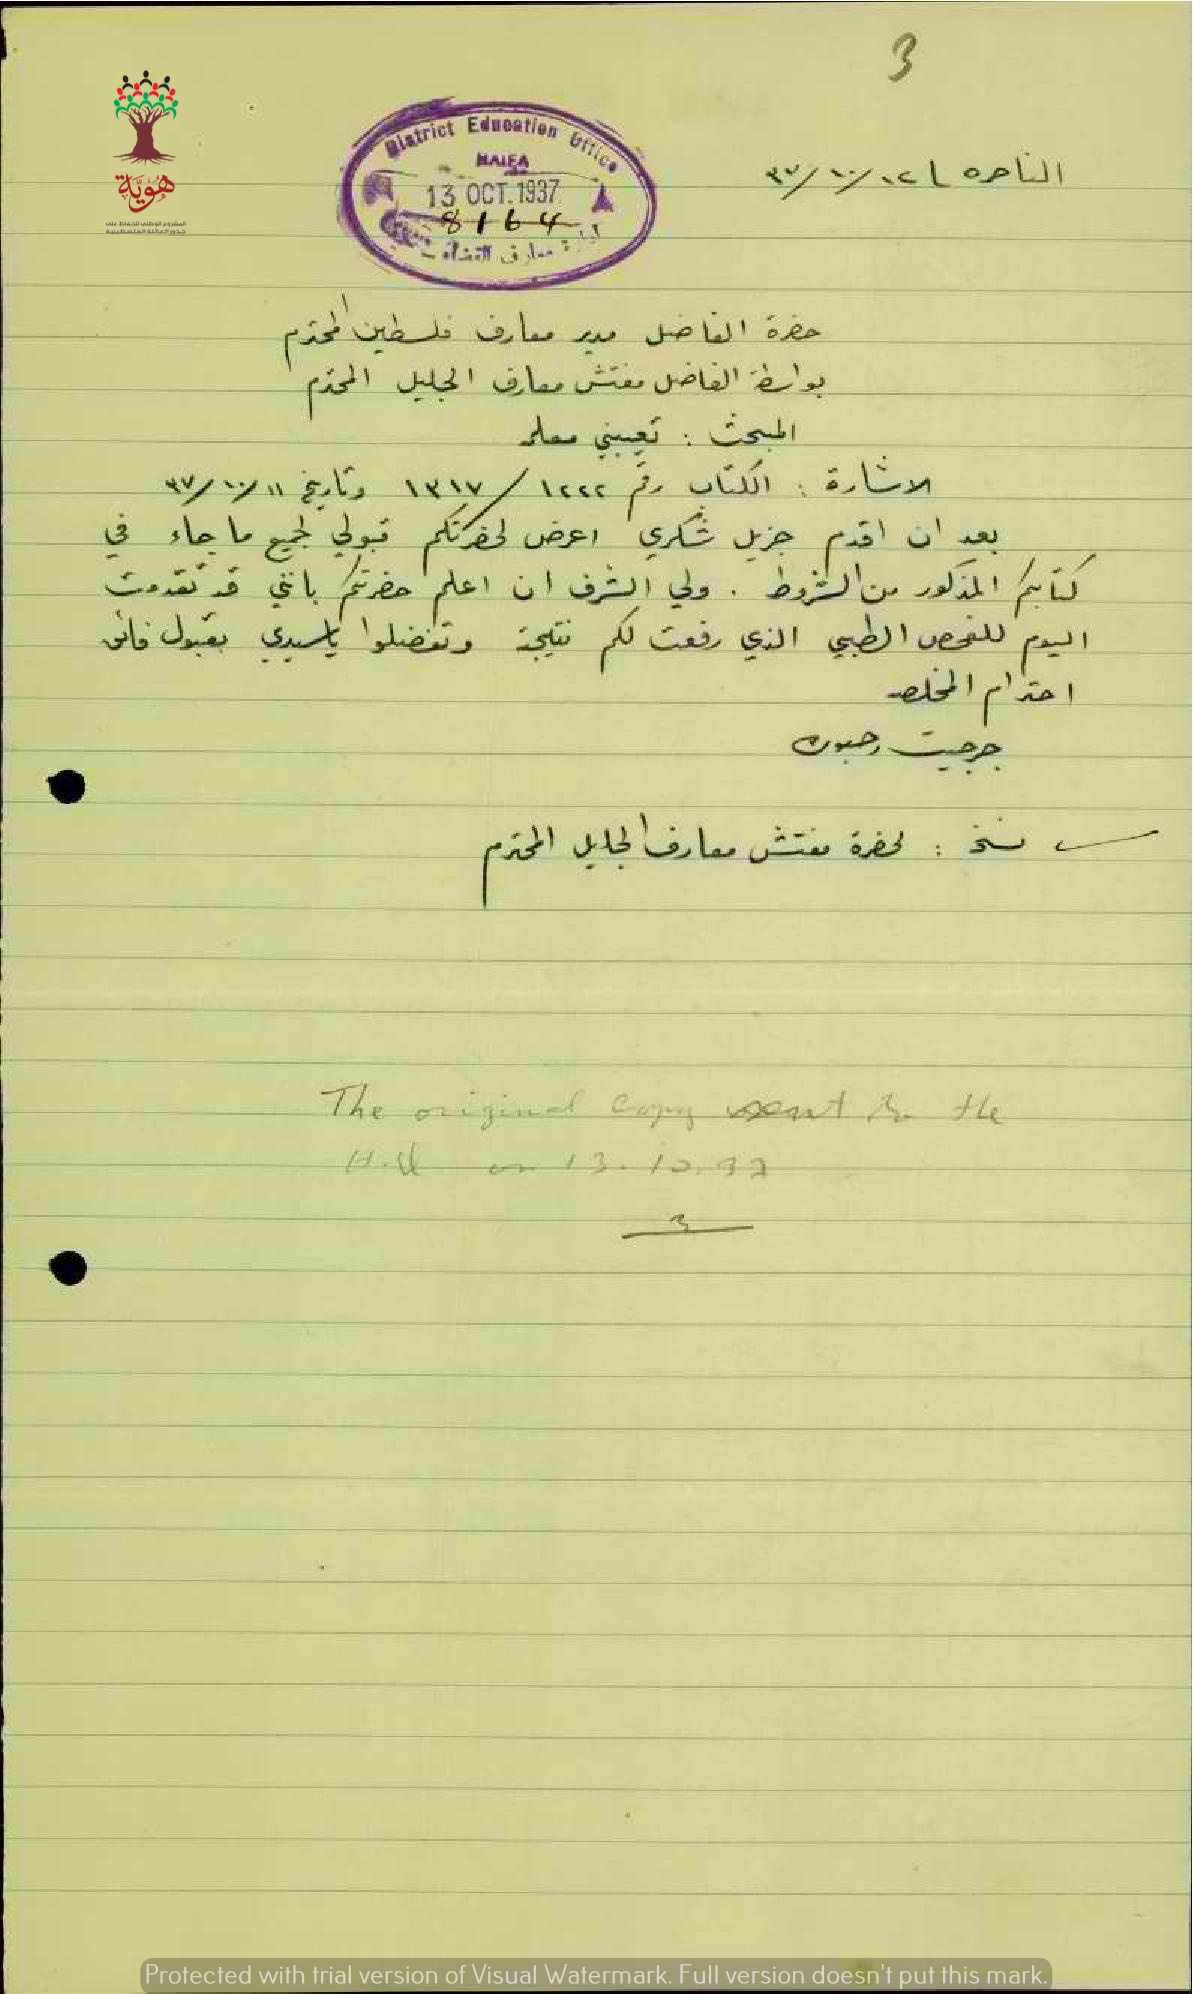 3
District Education Office
HAIFA
13 OCT. 1937
8164
ادارة معارف القضاء
هُويَّة
المشروع الوطني للحفاظ على
جذور العائلة الفلسطينية
الناصره في ١٢/١٠/٣٧
حضرة الفاضل مدير معارف فلسطين المحترم
بواسطة الفاضل مفتش معارف الجليل المحترم
المبحث : تعييني معلم
الاشارة : الكتاب رقم ١٢٢٢/١٣١٧ وتاريخ ١١/١٠/٣٧
بعد ان اقدم جزيل شكري اعرض لحضرتكم قبولي لجميع ما جاء في
كتابكم المذكور من الشروط . ولي الشرف ان اعلم حضرتكم بانني قد تقدمت
اليوم للفحص الطبي الذي رفعت لكم نتيجته وتفضلوا ياسيدي بقبول فائق
احترام المخلص
جرجيت
نسخة : لحضرة مفتش معارف الجليل المحترم
The original copy sent to the
H.Q. on 13.10.37
3
Protected with trial version of Visual Watermark. Full version doesn't put this mark.